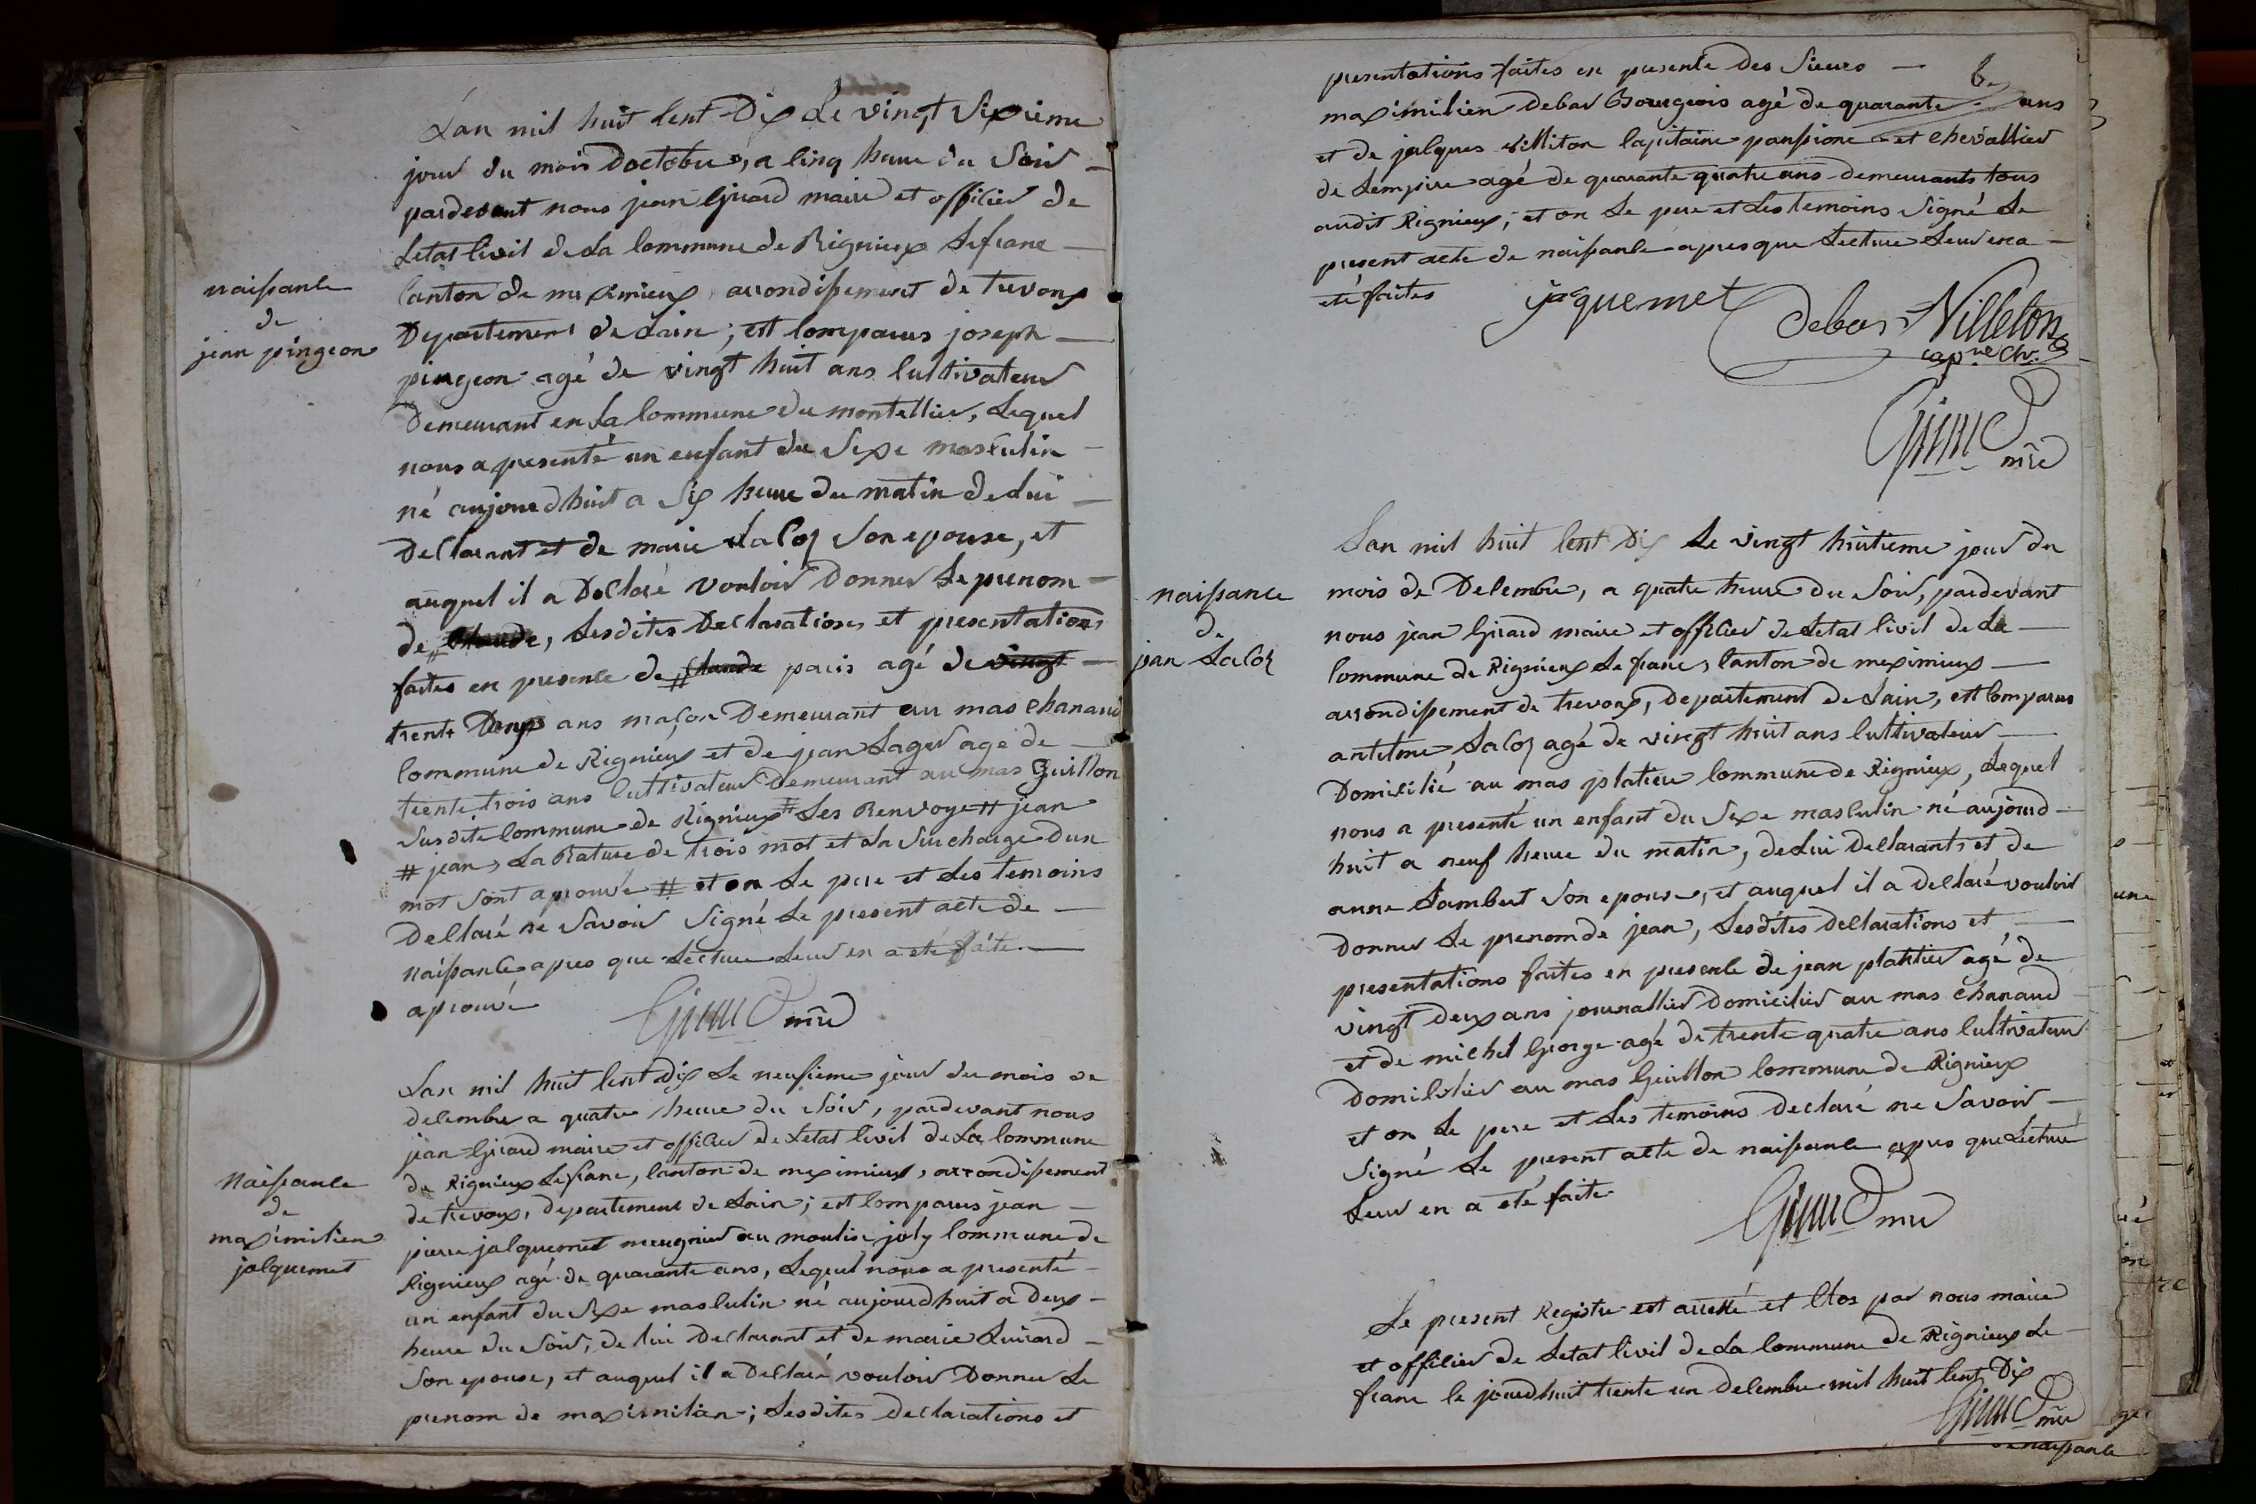 naissance
de
jean pingeon
Lan mil huit Cent Dix Le vingt Sixieme
jour du mois doctobre, a Cinq heure du Soir
pardevant nous jean Girard maire et officier de
Letat Civil de La Commune de Rignieux Le franc
Canton de meximieux arrondissement de trevoux
Departement de Lain; est Comparus joseph
pingeon agé de vingt huit ans Cultivateur
Demeurant en La Commune du montellier, Lequel
nous a presenté un enfant du Sexe masculin
né aujourdhuit a Six heure du matin de Lui
Declarant et de marie Lacoz Son epouse, et
auquel il a Declaré vouloir Donner Le prenom
de # Claude, Lesdites Declarations et presentations
faites en presence de # Claude paris agé de vingt
trente Deux ans maçon Demeurant au mas Chanaud
Commune de Rignieux et de jean Lager agé de
trente trois ans Cultivateur Demeurant au mas Guillon
Susdite Commune de Rignieux # Les Renvoye # jean
# jean, La Rature de trois mot et La Surcharge Dun
mot Sont aprouvé # et on Le pere et Les temoins
Declaré ne Savoir Signé Le present acte de
naissance apres que Lecture Leur en a eté faite
aprouvé
Girard mre
Naissance
de
maximilien
jacquemet
Lan mil huit Cent dix Le neufieme jour du mois de
decembre a quatre heure du Soir, pardevant nous
jean Girard maire et officier de Letat Civil de La Commune
de Rignieux Le franc, Canton de meximieux, arrondissement
de trevoux, departement de Lain; est Comparus jean
pierre jacquemet meugnier au moulin joly Commune de
Rignieux agé de quarante ans, Lequel nous a presenté
un enfant du Sexe masculin né aujourdhuit a Deux
heure du Soir, de lui Declarant et de marie Guirard
Son epouse, et auquel il a Declaré vouloir Donner Le
prenom de maximilien; Lesdites declarations et
presentations faites en presence des Sieurs
maximilien Debar Bourgeois agé de quarante ans
et de jacques villiton Capitaine panssioné et Chevallier
de Lempire agé de quarante quatre ans demeurants tous
audit Rignieux, et on Le pere et Les temoins Signé Le
present acte de naissance apres que Lecture Leur en a
eté faites
jacquemet
Debar
Villeton
capne Chr.
Girard
mre
naissance
de
jean Lacoz
Lan mil huit Cent Dix Le vingt huitieme jour du
mois de Decembre, a quatre heure du Soir, pardevant
nous jean Girard maire et officier de Letat Civil de La
Commune de Rignieux Le franc, Canton de meximieux
arrondissement de trevoux, departement de Lain, est Comparus
antelme Lacoz agé de vingt huit ans Cultivateur
Domicilié au mas platiere Commune de Rignieux, Lequel
nous a presenté un enfant du Sexe masculin né aujourd
huit a neuf heure du matin, de Lui Declarant et de
anne Lambert Son epouse, et auquel il a declaré vouloir
donner Le prenom de jean, Lesdites declarations et
presentations faites en presence de jean platier agé de
vingt deux ans journallier Domicilier au mas Chanaud
et de michel George agé de trente quatre ans Cultivateur
Domicilier au mas Guillon Commune de Rignieux
et on Le pere et Les temoins declaré ne Savoir
Signé Le present acte de naissance apres que Lecture
Leur en a eté faite
Girard mre
Le present Registre est arretté et Clos par nous maire
et officier de Letat Civil de La Commune de Rignieux Le
franc le jourdhuit trente un decembre mil huit Cent Dix
Girard mre
une
naissance